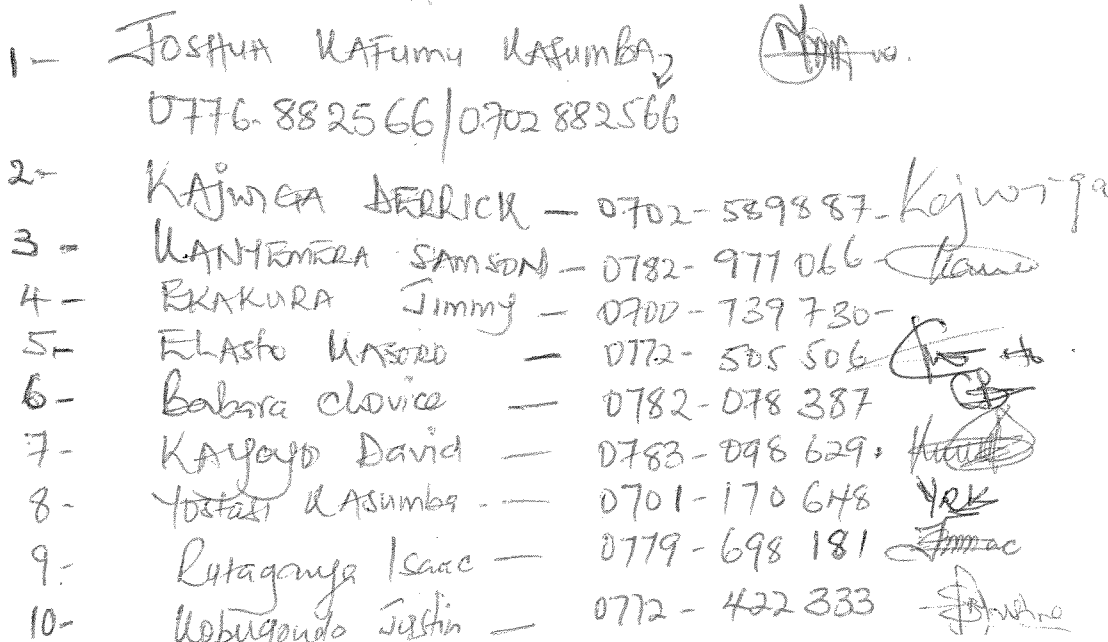 1- JOSHUA KAFUMU KASUMBA
0776-882566/0702 882566
2- KAJWIGA DERRICK - 0702-589887- Kajwiga
3- KANYEMERA SAMSON - 0782-977 066-
4- EKAKURA Jimmy - 0700-739730-
5- ELASTO KASORO - 0772-505 506
6- Babara chovice - 0782-078 387
7- KAYOYO David - 0783-098 629.
8- Yostasi KAsumba - 0701-170 648 YRK
9- Rutaganya Isaac - 0779-698 181
10- Kobugondo Justin - 0772-422 333